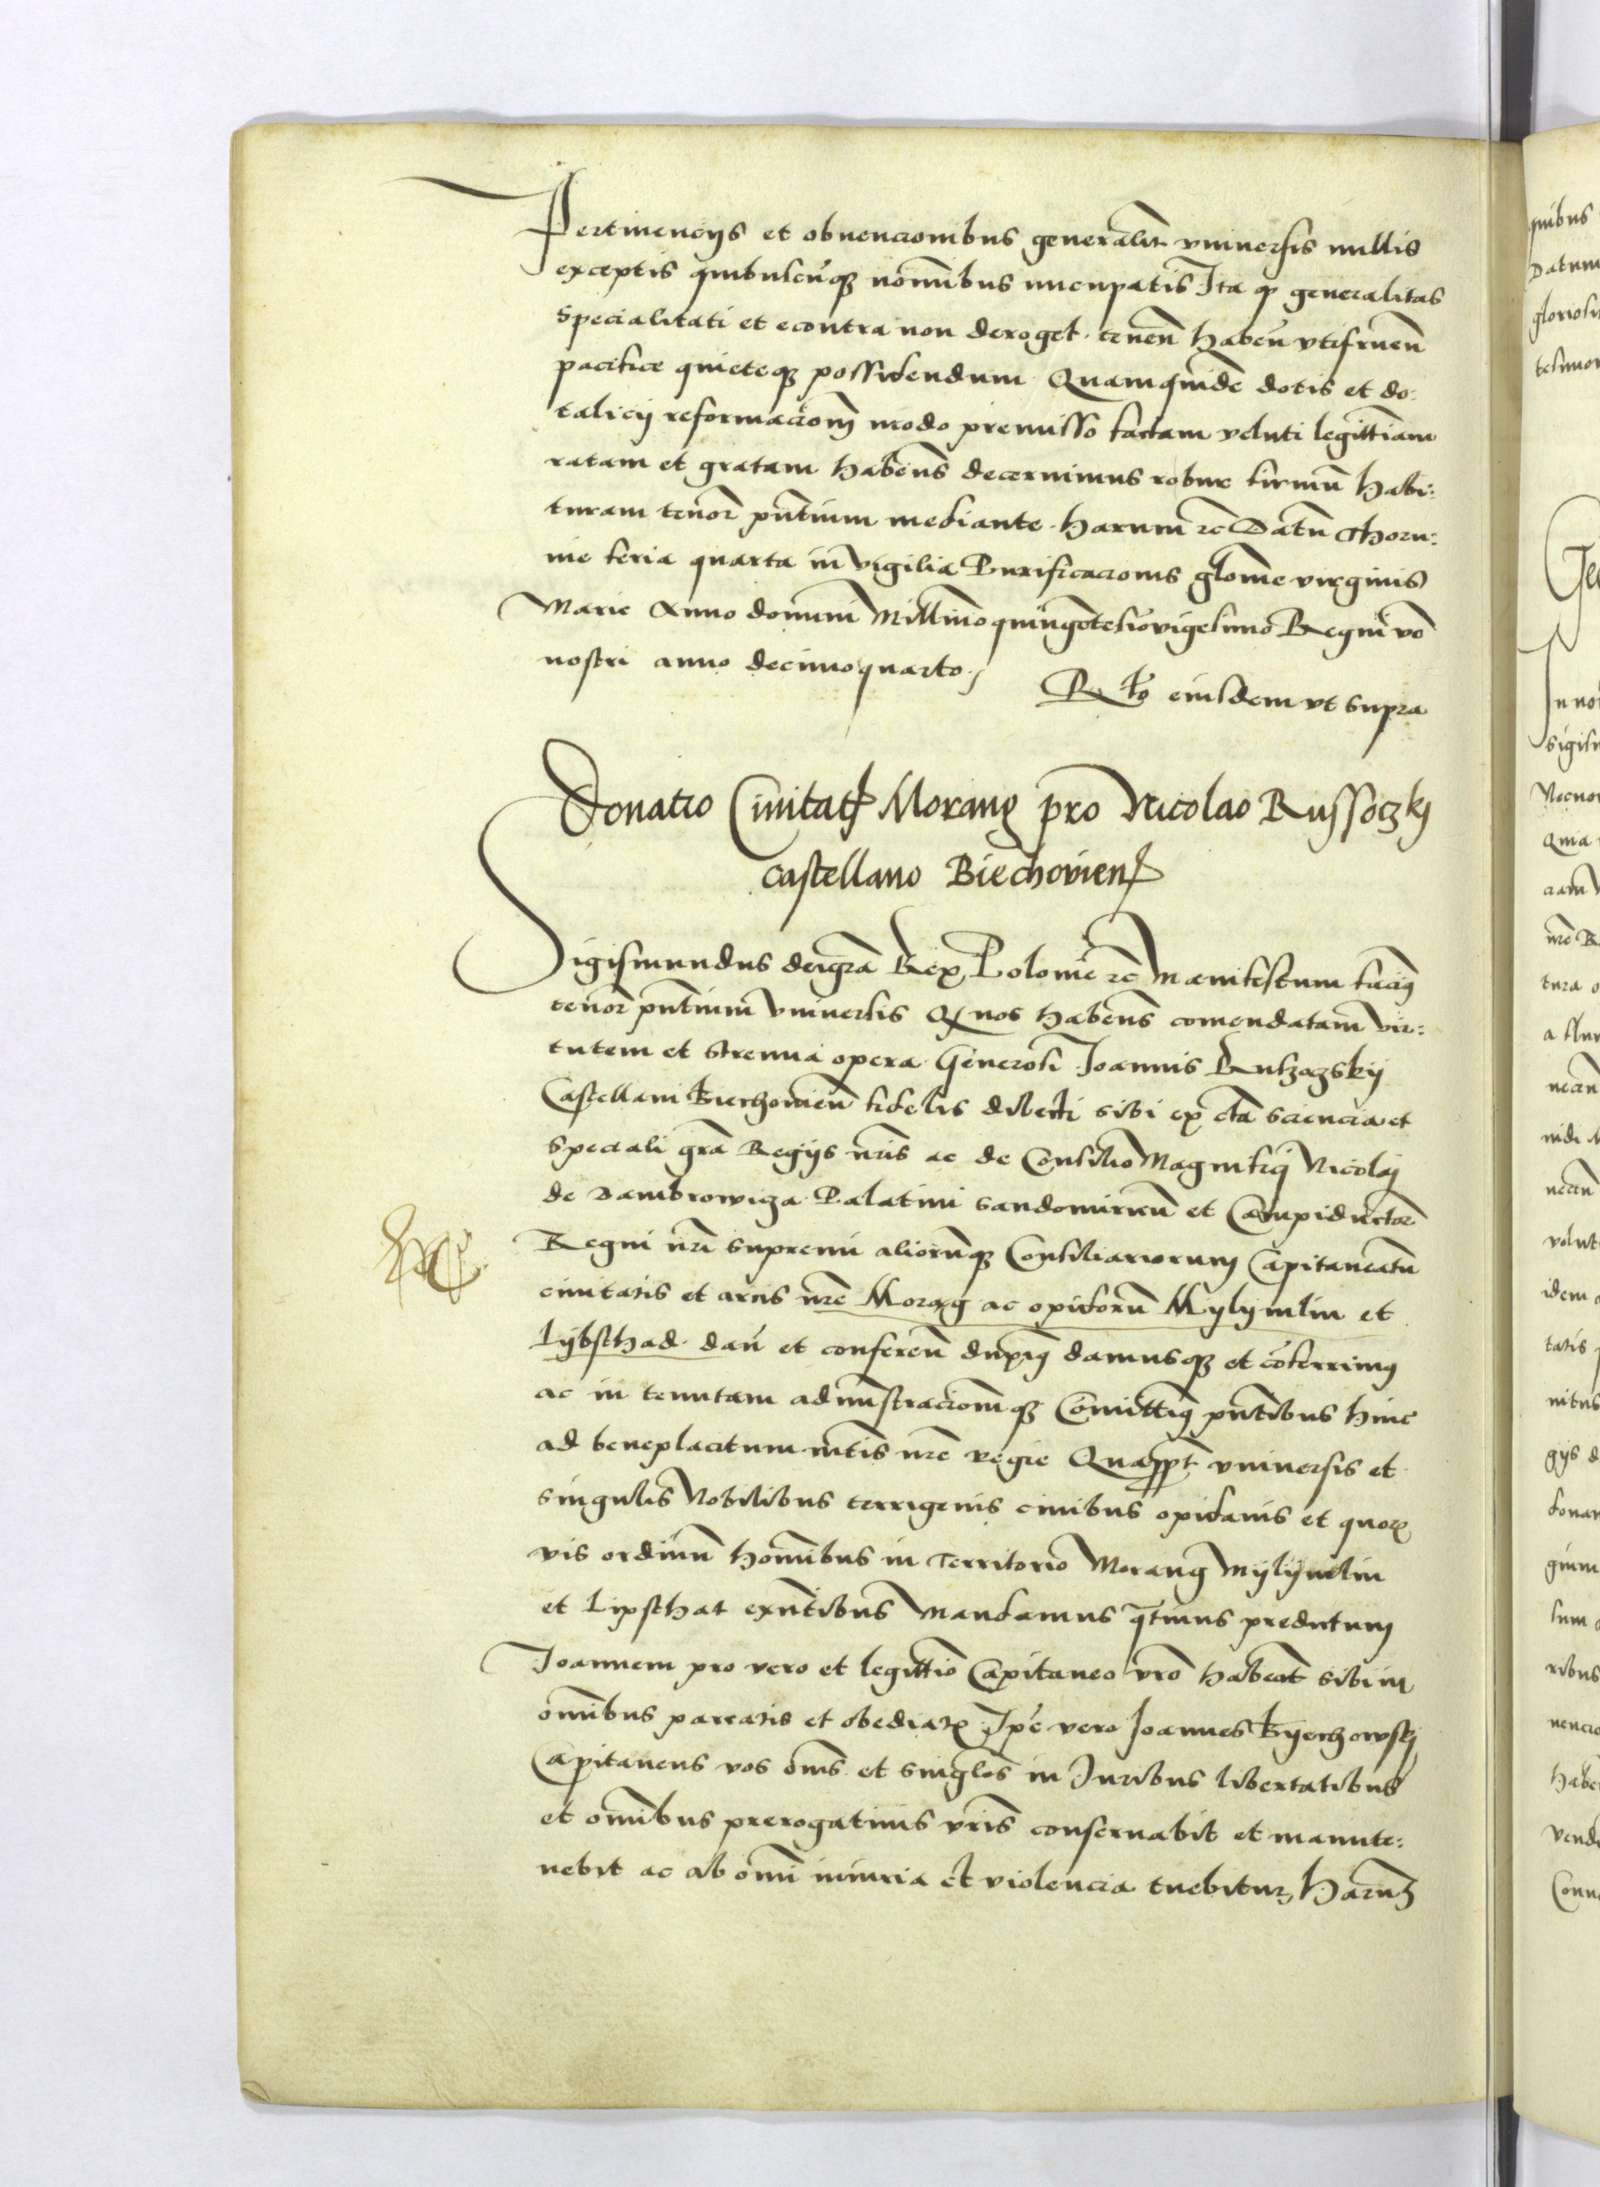 Pertinencijs et obvencionibus generalit vniversis nullis
exceptis quibuscuq nominibus nuncupatis Ita q generalitas
specialitati et econtra non deroget. tenen haben vtifruen
pacifice quieteq possidendum Quamquide dotis et do:
talicij reformacionem modo premisso factam veluti legittimam
ratam et gratam habens decernimus robur firmu habi:
turam tenor pntium mediante. harum rc Datu Thoru:
nie feria quarta in vigilia Purificacionis gloriose virginis
Marie Anno domini Millimo quingetesimovigesimo Regni vo
nostri anno decimoquarto.
Rlo eiusdem vt supra
Donatio Ciuitatis Morang pro Nicolao Russoczkj
castellano Biechouien
Sigismundus dei gra Rex Polonie rc Manifestum facimus
tenor pntium vniversis Q nos habens comendatam vir:
tutem et strenua opera Generosi Joannis Rusczoczskij
Castellani Biechouien fidelis dilecti sibi ex cta sciencia et
speciali gra Regijs nris ac de Consilio Magnifici Nicolaj
de Dambrowicza Palatini Sandomirien et Campiductor
Regni nri supremi alioruq Consiliariorum Capitaneatu
ciuitatis et arcis nre Morag ac opidoru Mylijmlin et
Lijbsthad. dan et conferen duximus damusq et coferrimus
ac in tenutam administracionemq Comittimus pntibus hinc
ad beneplacitum mtis nre regie Quappt vniversis et
singulis Nobilibus terrigenis ciuibus opidanis et quor
vis ordinu hominibus in Territorio Morang Mylijmlin
et Lipsthat exntibus Mandamus qtinus predictum
Joannem pro vero et legittimo Capitaneo vro habeat sibi in
omibus pareatis et obediatis Ipe vero Joannes Byechowskj
Capitaneus vos oms et singlos in Iuribus libertatibus
et omibus prerogatiuis vris conseruabit et manute:
nebit ac ab omi iniuria et violencia tuebitur Harum